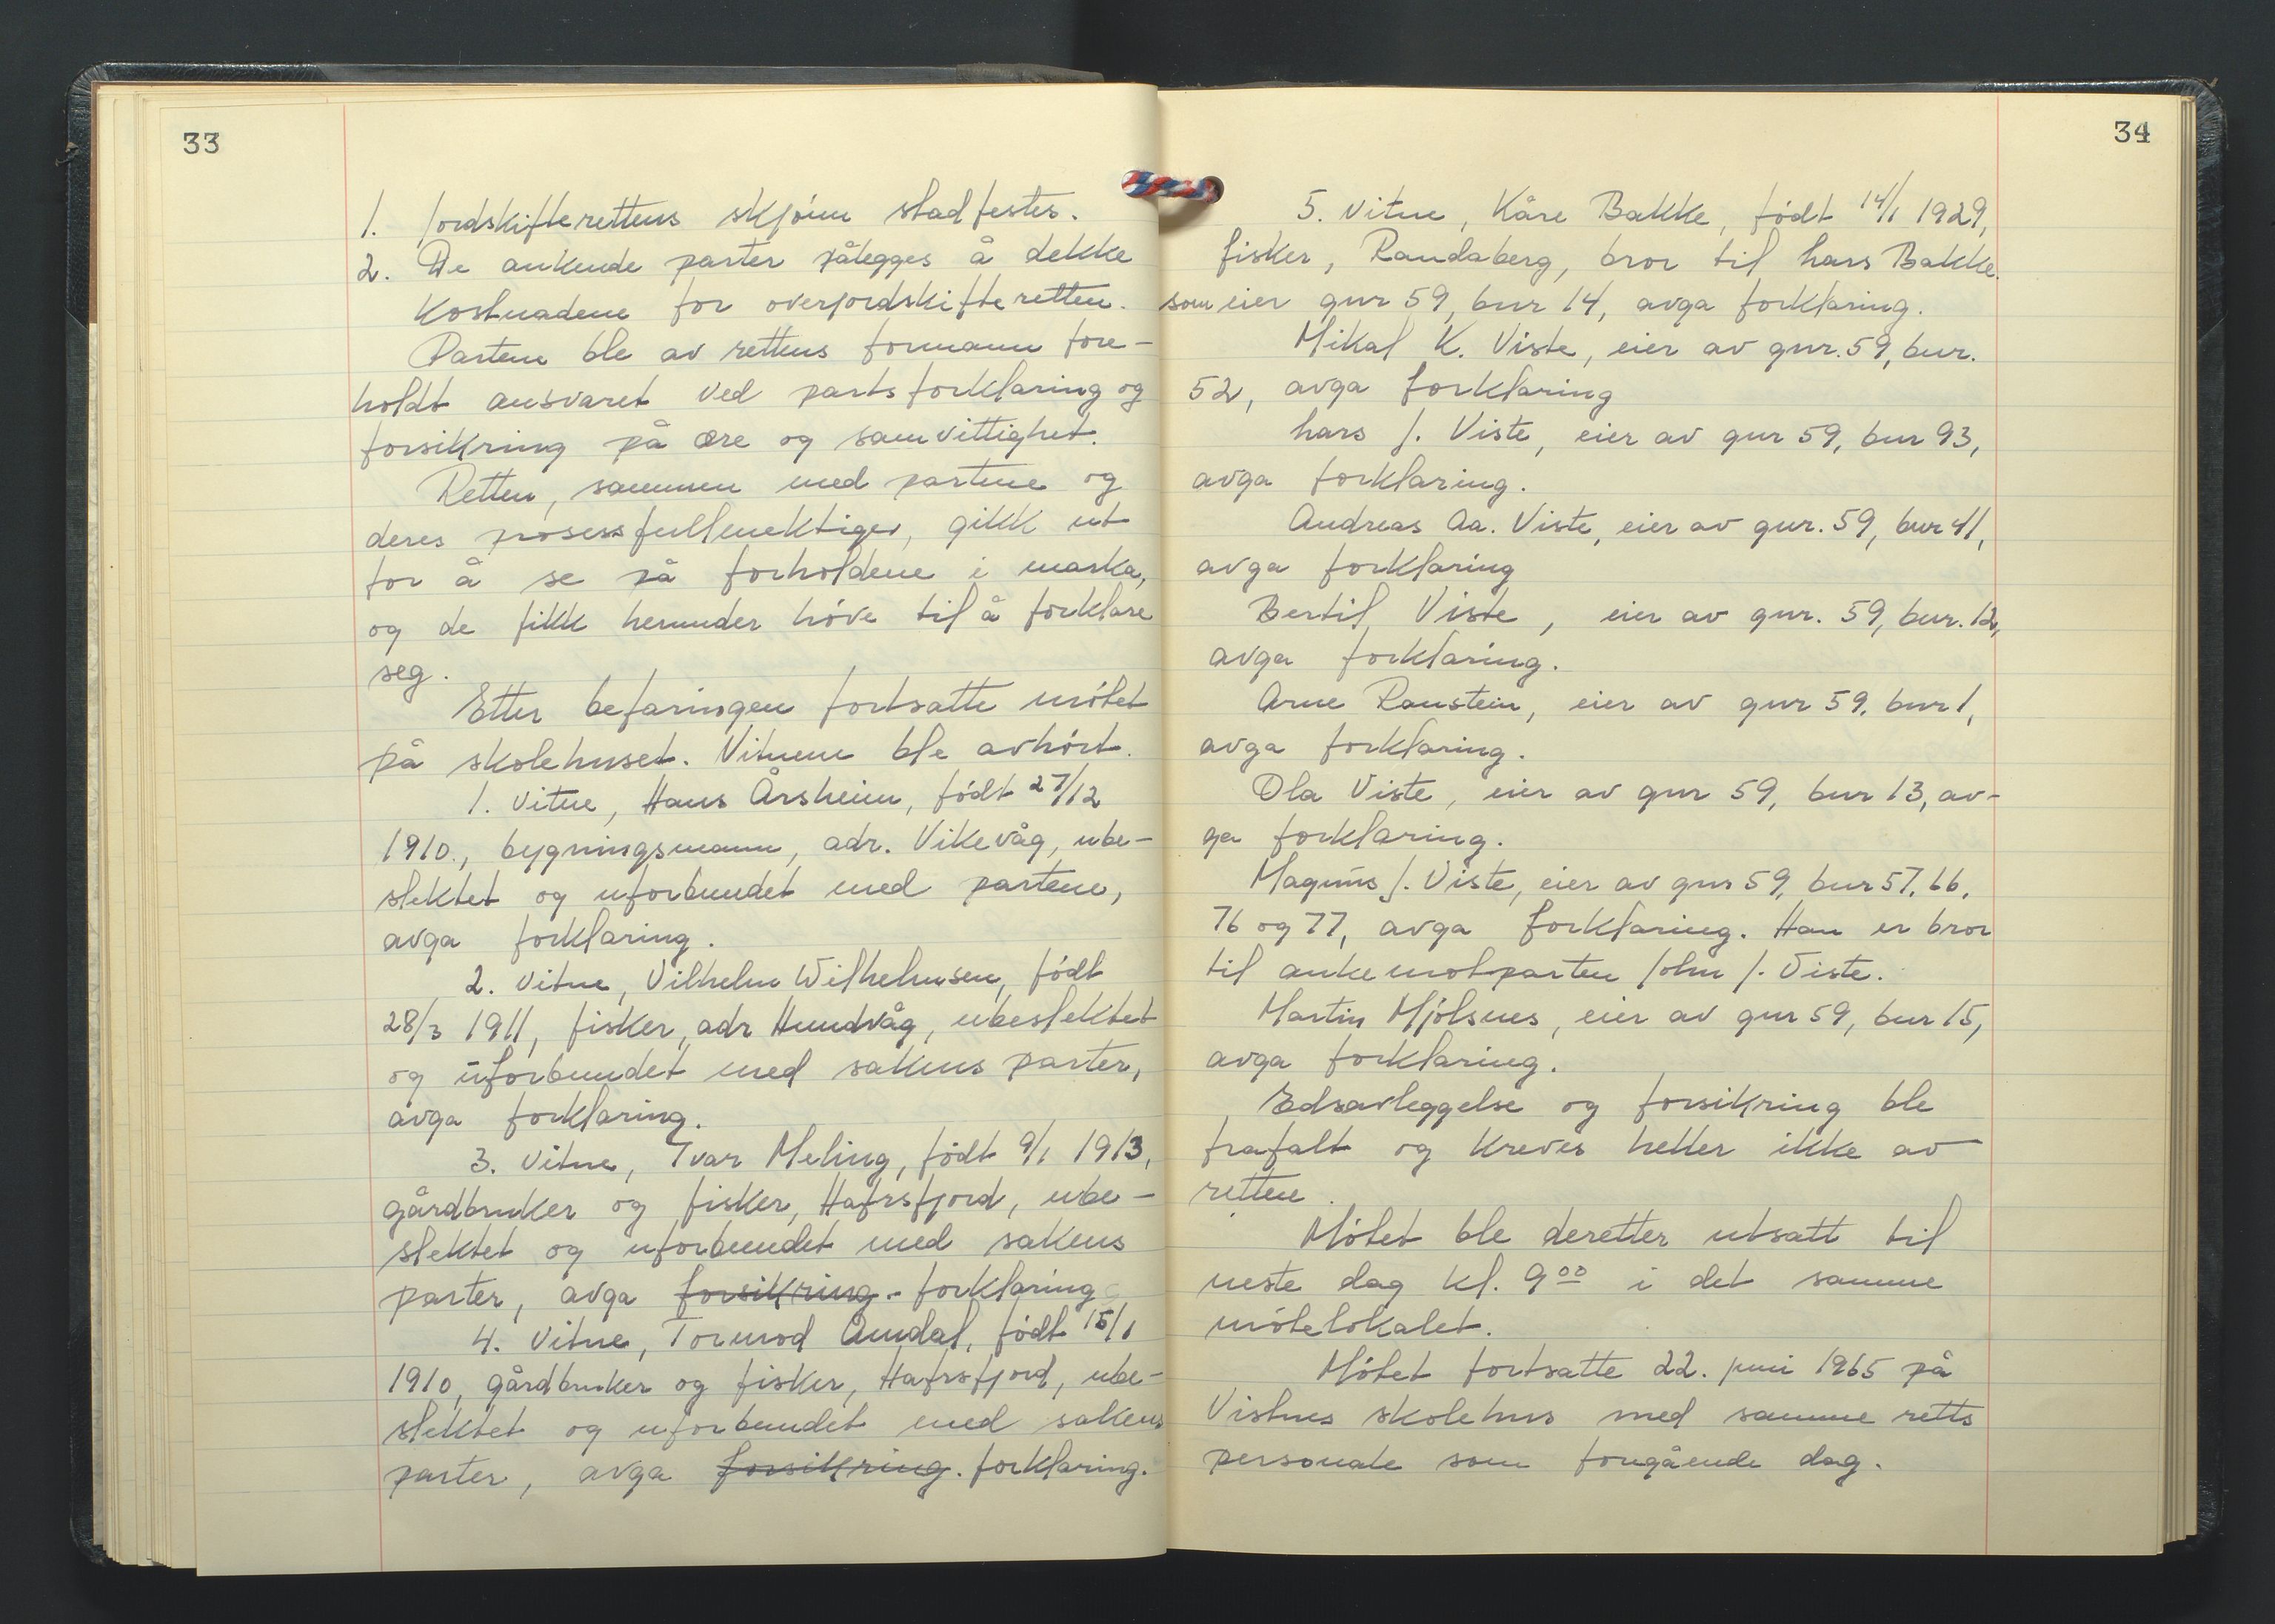 33
1. Jordskifterettens skjønn stadfestes.
2. De ankende parter pålegges å dekke
kostnadene for overjordskifteretten.
Partene ble av rettens formann fore-
holdt ansvaret ved partsforklaring og
forsikring på ære og samvittighet.
Retten, sammen med partene og
deres prosessfullmektiger, gikk ut
for å se på forholdene i marka,
og de fikk herunder høve til å forklare
seg.
Etter befaringen fortsatte møtet
på skolehuset. Vitnene ble avhørt.
1. vitne, Hans Årsheim, født 27/12
1910., bygningsmann, adr. Vikevåg, ube-
slektet og uforbundet med partene,
avga forklaring.
2. vitne, Vilhelm Wilhelmsen, født
28/3 1911, fisker, adr Hundvåg, ubeslektet
og uforbundet med sakens parter,
avga forklaring.
3. vitne, Ivar Meling, født 9/1 1913,
gårdbruker og fisker, Hafrsfjord, ube-
slektet og uforbundet med sakens
parter, avga forsikring. forklaring
4. vitne, Tormod Amdal, født 15/1
1910, gårdbruker og fisker, Hafrsfjord, ube-
slektet og uforbundet med sakens
parter, avga forsikring. forklaring.
34
5. vitne, Kåre Bakke, født 14/1 1929,
fisker, Randaberg, bror til Lars Bakke.
som eier gnr 59, bnr 14, avga forklaring.
Mikal K. Viste, eier av gnr. 59, bnr.
52, avga forklaring
Lars J. Viste, eier av gnr 59, bnr 93,
avga forklaring.
Andreas Aa. Viste, eier av gnr. 59, bnr 41,
avga forklaring
Bertil Viste, eier av gnr. 59, bnr. 12,
avga forklaring.
Arne Raustein, eier av gnr 59, bnr 1,
avga forklaring.
Ola Viste, eier av gnr 59, bnr 13, av-
ga forklaring.
Magnus J. Viste, eier av gnr 59, bnr 57, 66,
76 og 77, avga forklaring. Han er bror
til ankemotparten John J. Viste.
Martin Mjølsnes, eier av gnr 59, bnr 15,
avga forklaring.
Edsavleggelse og forsikring ble
frafalt og kreves heller ikke av
retten.
Møtet ble deretter utsatt til
neste dag kl. 9⁰⁰ i det samme
møtelokalet.
Møtet fortsatte 22. juni 1965 på
Vistnes skolehus med samme retts
personale som forrgående dag.